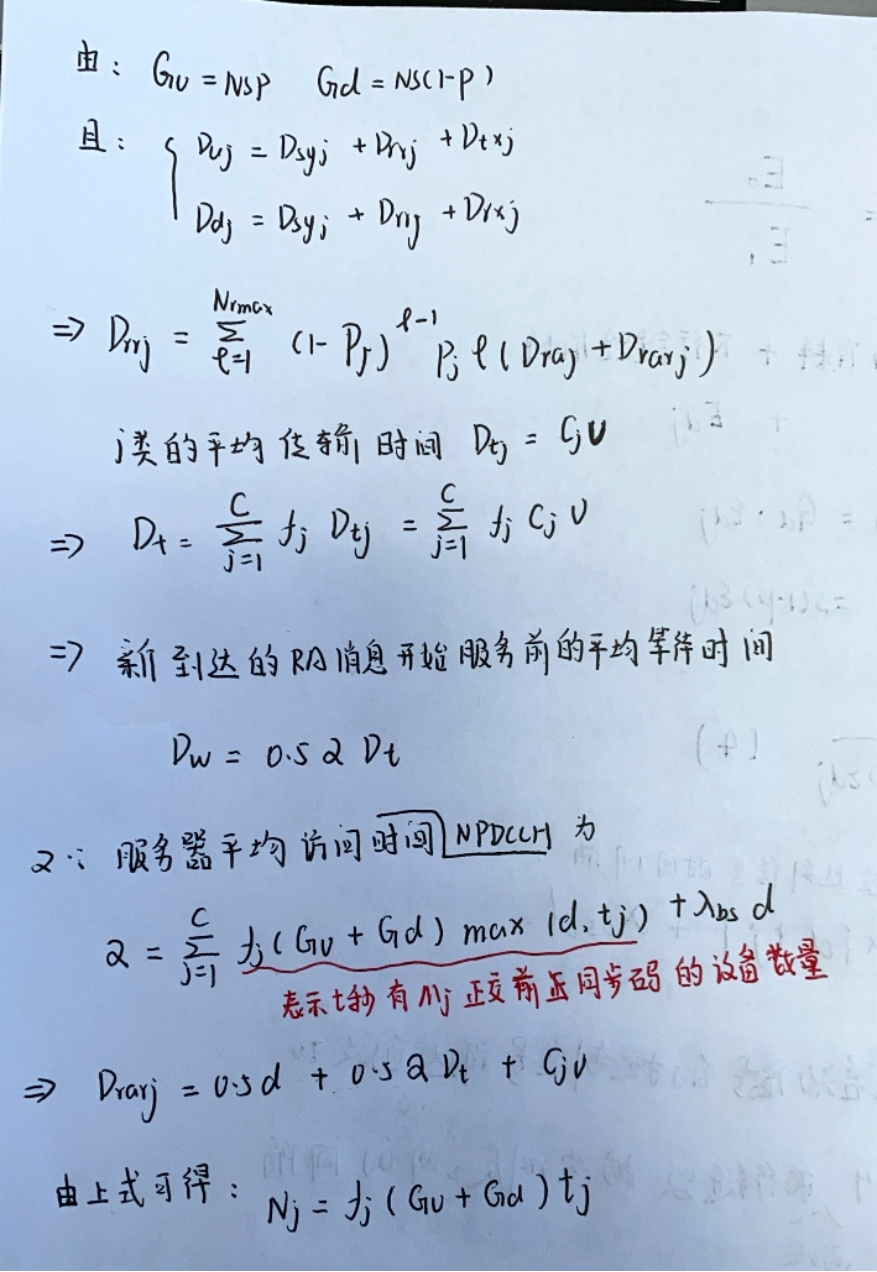 由： Gu = NSP Gd = NS(1-P)
且： { Duj = Dsyj + Drrj + Dtxj
Ddj = Dsyj + Drrj + Drxj
⇒ Drrj = Σ_{ℓ=1}^{Nrmax} (1-Pj)^{ℓ-1} Pj ℓ (Draj + Drarj)
j类的平均传输时间 Dtj = Cj υ
⇒ Dt = Σ_{j=1}^{C} fj Dtj = Σ_{j=1}^{C} fj Cj υ
⇒ 新到达的RA消息开始服务前的平均等待时间
Dw = 0.5 Q Dt
Q： 服务器平均访问时间 NPDCCH 为
Q = Σ_{j=1}^{C} fj (Gu + Gd) max (d, tj) + λbs d
表示t秒有Mj正交前正同步码的设备数量
⇒ Drarj = 0.5d + 0.5 Q Dt + Cj υ
由上式可得： Nj = fj (Gu + Gd) tj